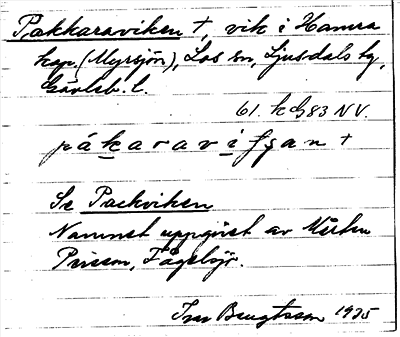 Pakkaraviken †, vik i Hamra
kap. (Myrsjön), Los sn, Ljusdals tg,
Gävleb. l.
61. kG83 NV.
pákaravifgan †
Se Packviken
Namnet uppgivet av Mårten
Fågelsjö.
Bengtsson 1935